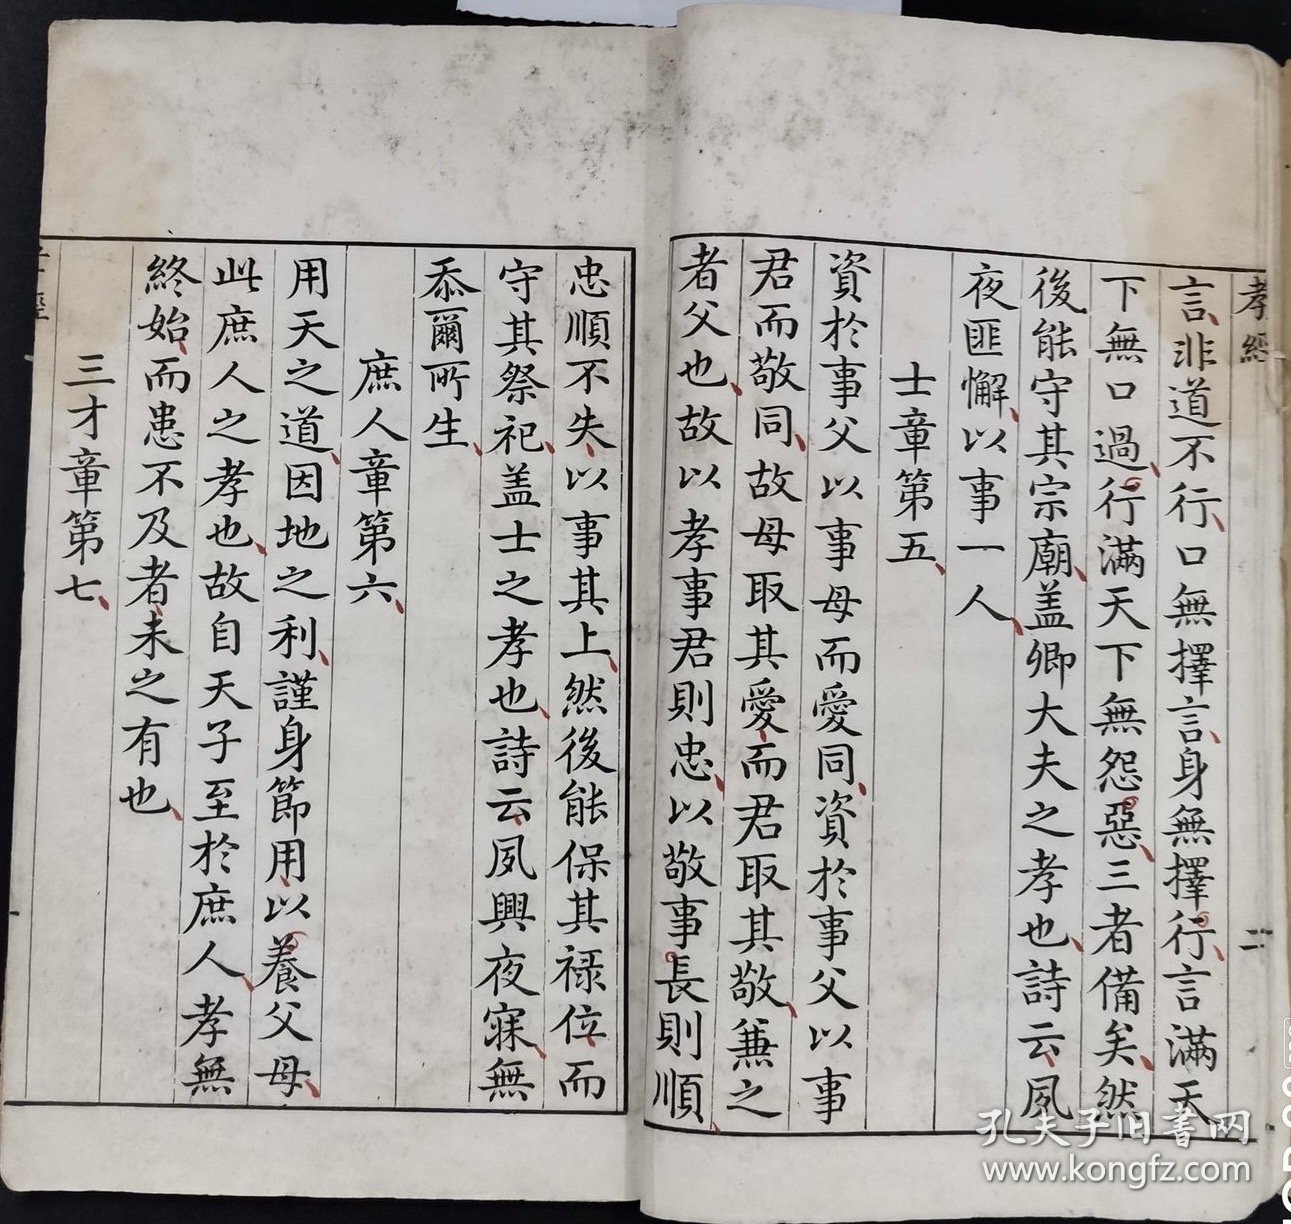 孝經
二
言非道不行口無擇言身無擇行言滿天
下無口過行滿天下無怨惡三者備矣然
後能守其宗廟盖卿大夫之孝也詩云夙
夜匪懈以事一人
士章第五
資於事父以事母而愛同資於事父以事
君而敬同故母取其愛而君取其敬兼之
者父也故以孝事君則忠以敬事長則順
忠順不失以事其上然後能保其祿位而
守其祭祀盖士之孝也詩云夙興夜寐無
忝爾所生
庶人章第六
用天之道因地之利謹身節用以養父母
此庶人之孝也故自天子至於庶人孝無
終始而患不及者未之有也
三才章第七
孔夫子旧书网
www.kongfz.com